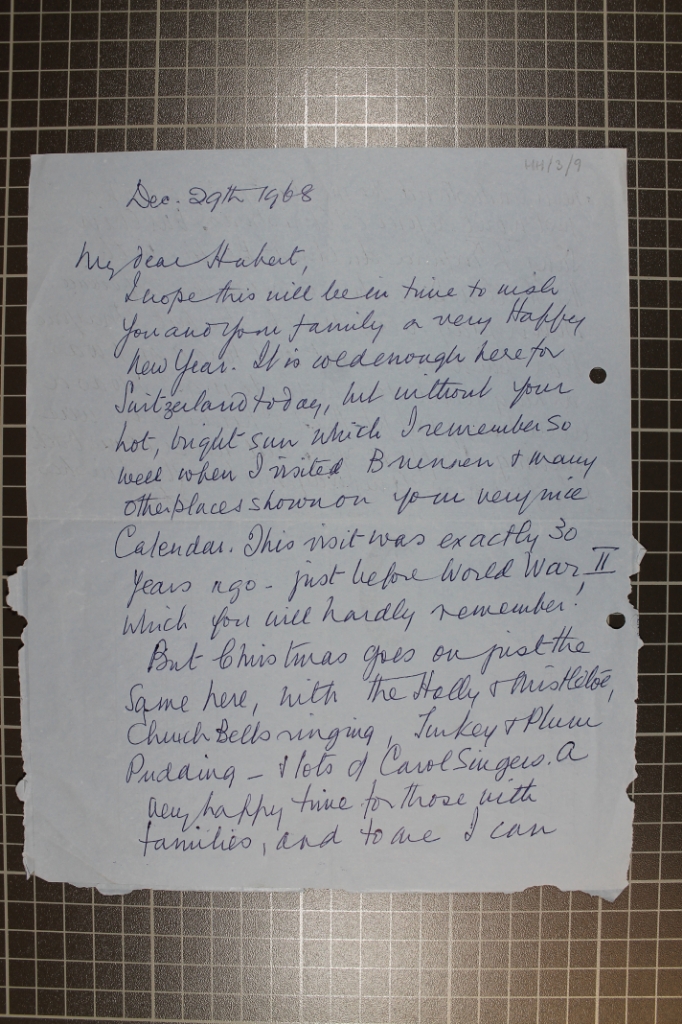 HH/3/9
Dec. 29th 1968
My dear Hubert,
I hope this will be in time to wish
you and your family a very Happy
New Year. It is cold enough here for
Switzerland today, but without your
hot, bright sun which I remember so
well when I visited Brunnen & many
other places shown on your very nice
Calendar. This visit was exactly 30
years ago - just before World War II
which you will hardly remember!
But Christmas goes on just the
same here, with the Holly & Mistletoe,
Church Bells ringing, Turkey & Plum
Pudding - & lots of Carol Singers. A
very happy time for those with
families, and to me I can